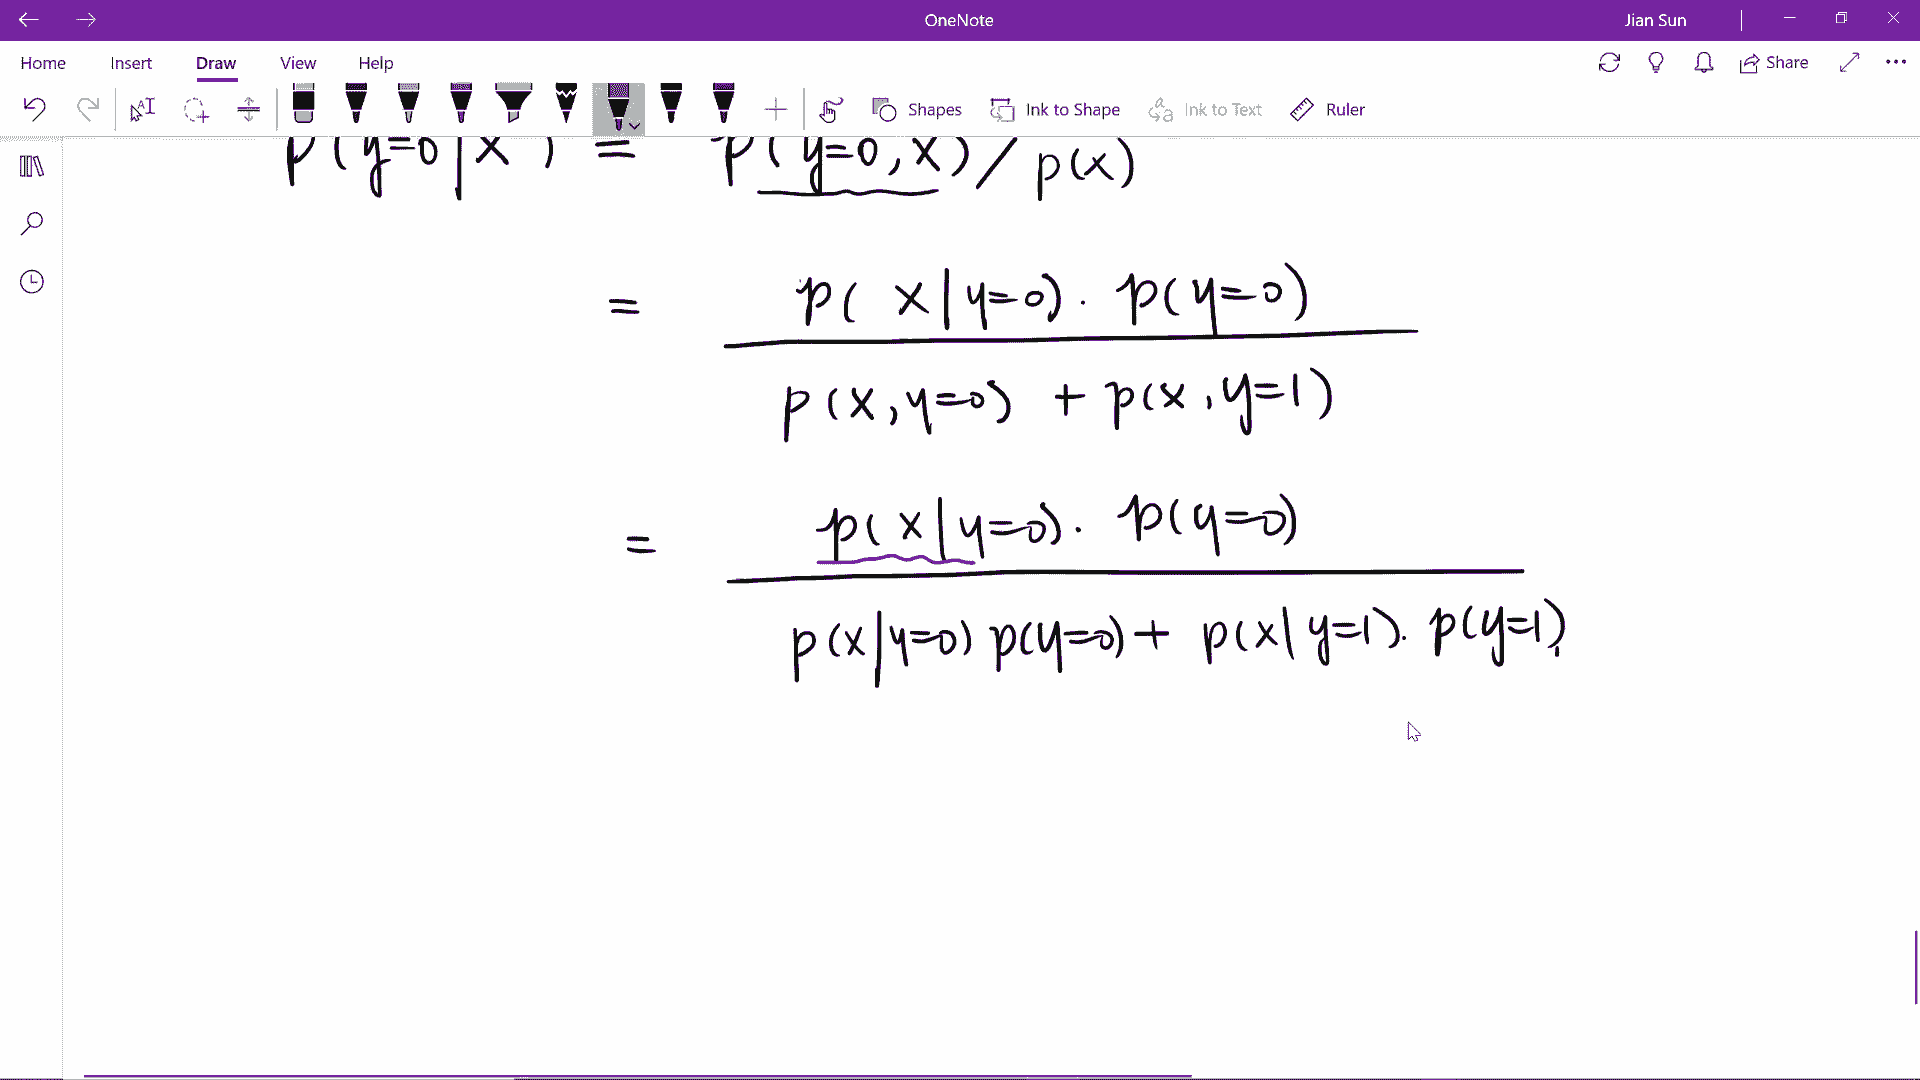 OneNote
Jian Sun
Home Insert Draw View Help
Share
Shapes Ink to Shape Ink to Text Ruler
p(y=0|x) = p(y=0,x)/p(x)
= p(x|y=0). p(y=0)
p(x,y=0) + p(x,y=1)
= p(x|y=0). p(y=0)
p(x|y=0)p(y=0)+ p(x|y=1). p(y=1)